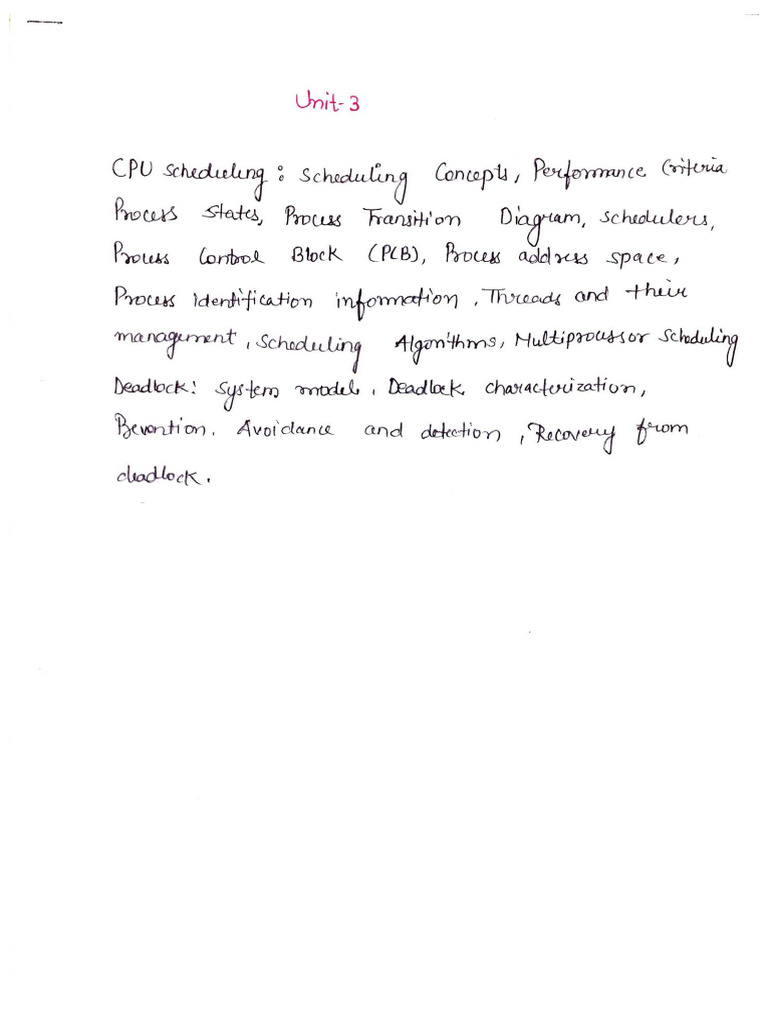 Unit-3
CPU Scheduling: Scheduling Concepts, Performance Criteria
Process States, Process Transition Diagram, Schedulers,
Process Control Block (PCB), Process address space,
Process identification information, Threads and their
management, Scheduling Algorithms, Multiprocessor Scheduling
Deadlock: System model, Deadlock characterization,
Prevention, Avoidance and detection, Recovery from
deadlock.